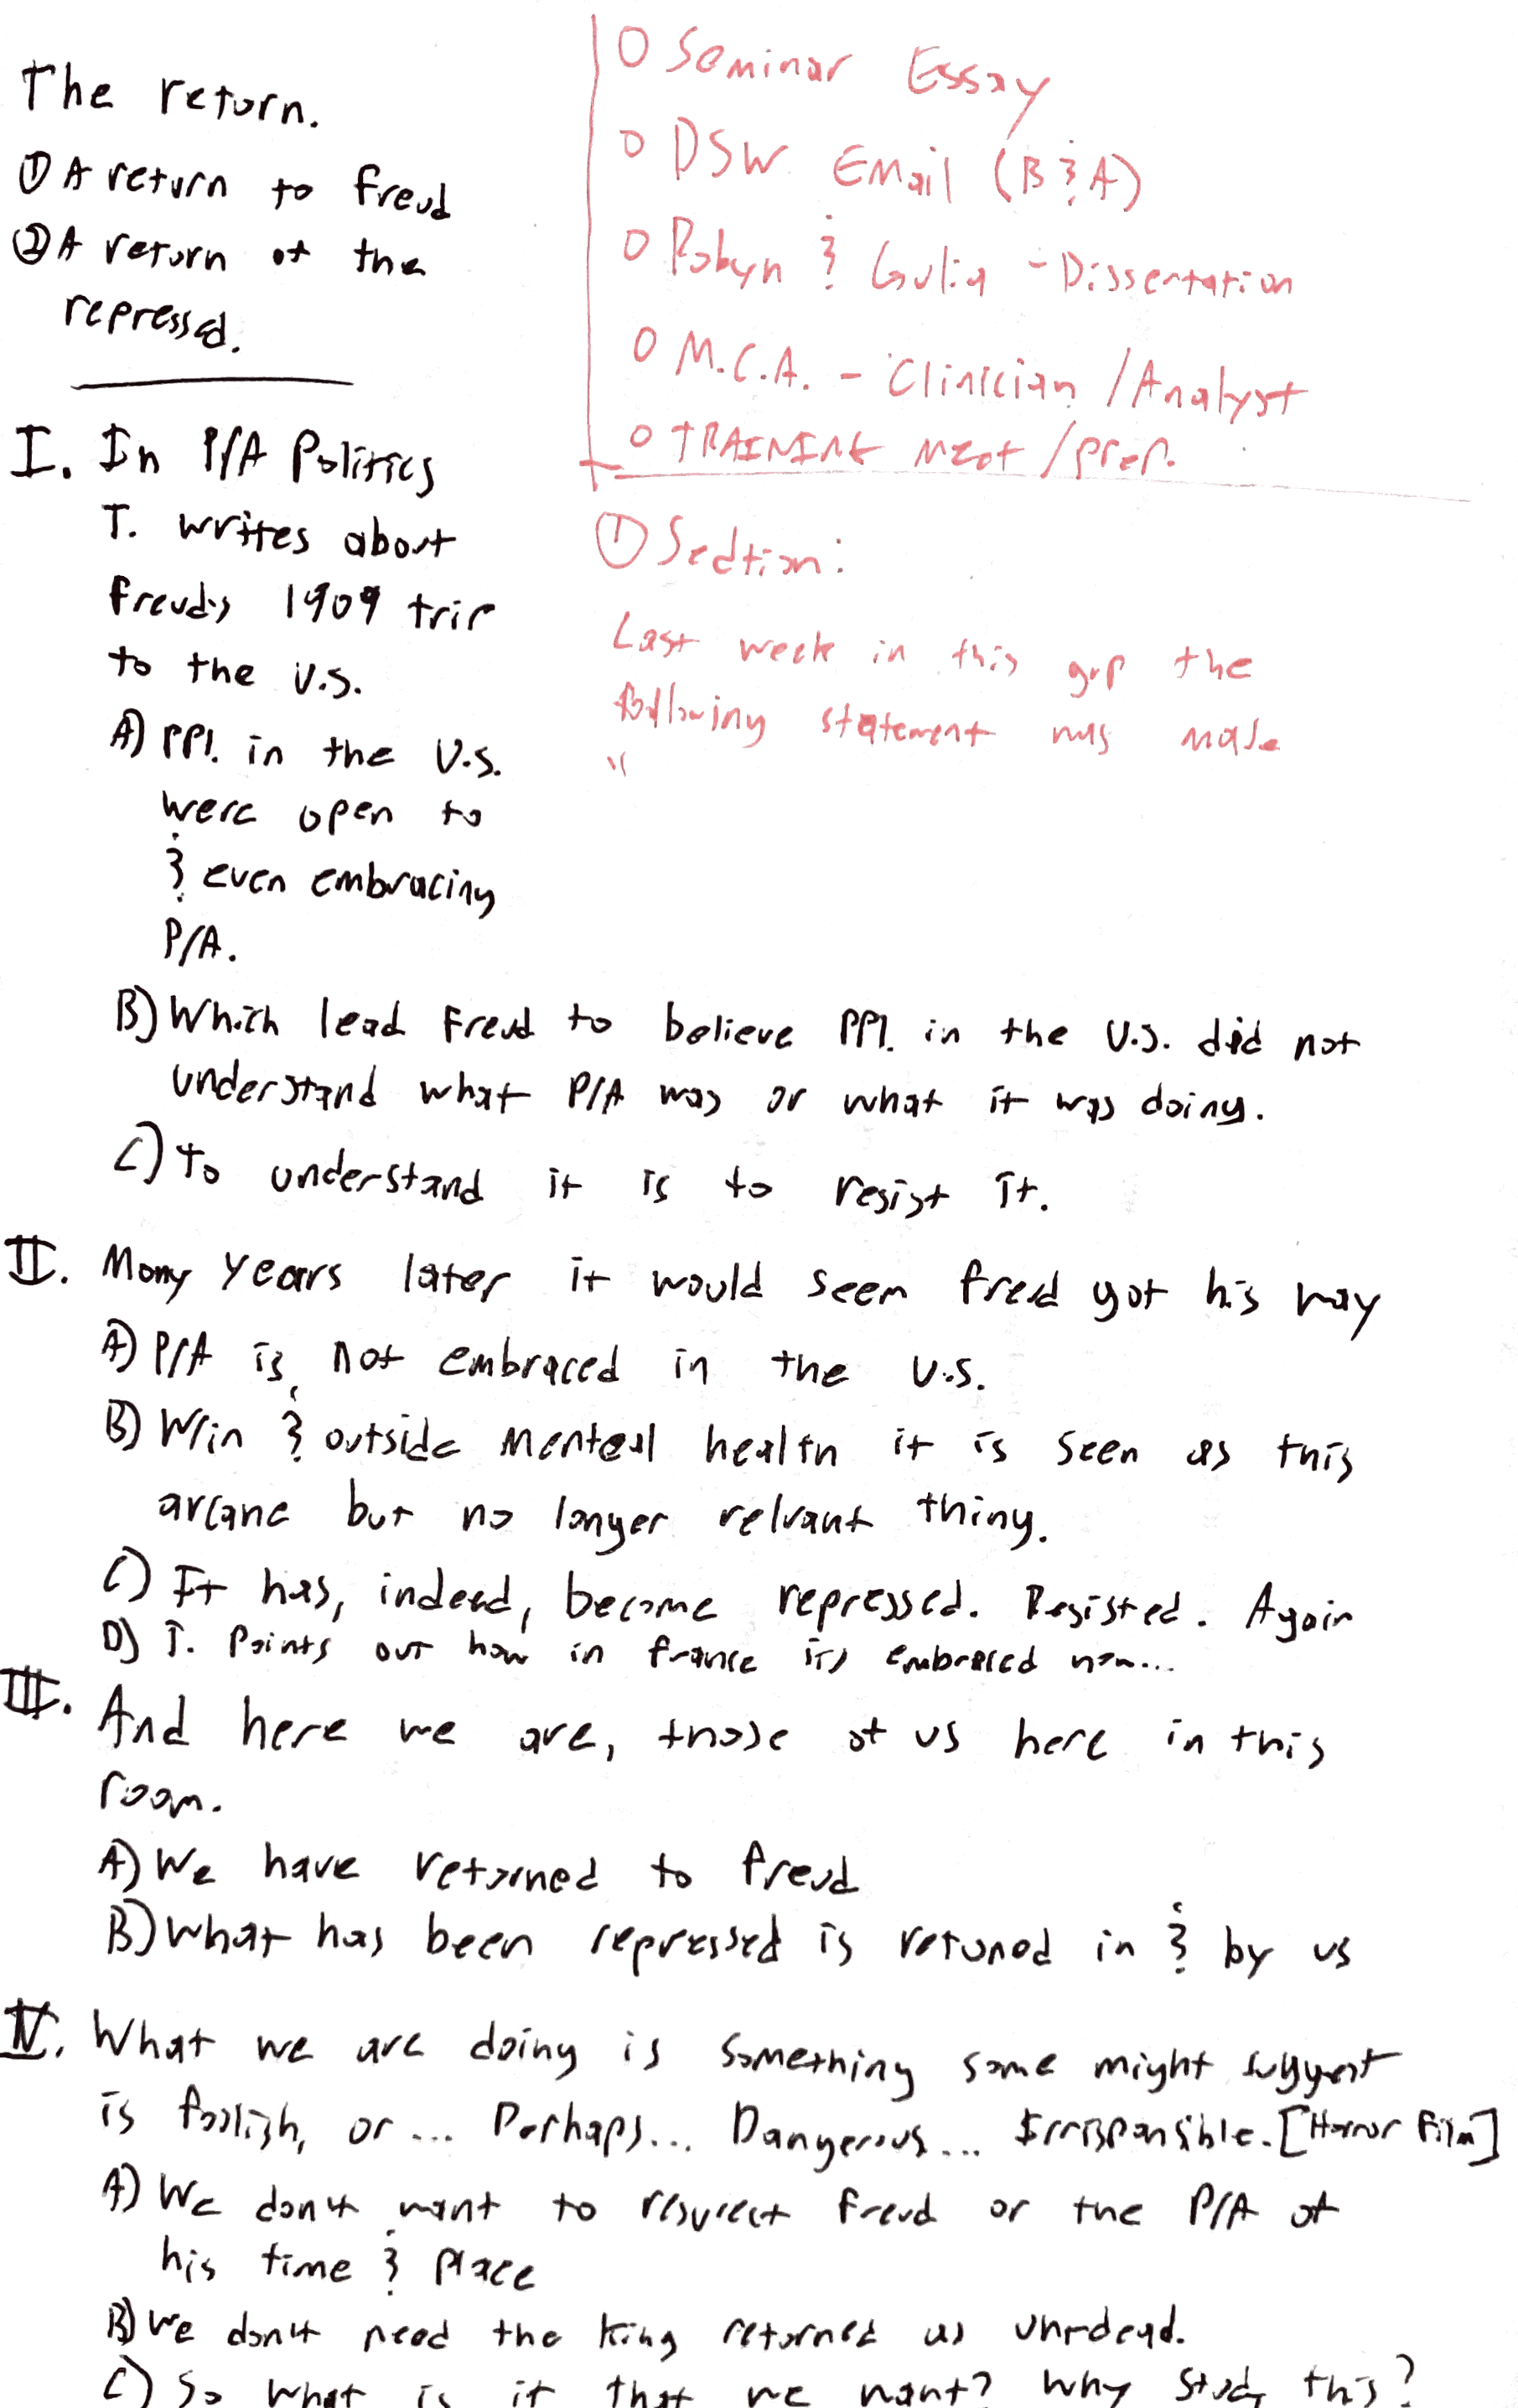 The return.
① A return to freud
② A return of the
repressed.
I. In P/A Politics
T. writes about
freud's 1909 trip
to the U.S.
A) PPl. in the U.S.
were open to
& even embracing
P/A.
B) Which lead Freud to believe PPl. in the U.S. did not
understand what P/A was or what it was doing.
C) to understand it is to resist it.
II. Many years later it would seem freud got his way
A) P/A is not embraced in the U.S.
B) W/in & outside mental health it is seen as this
arcane but no longer relvant thing.
C) It has, indeed, become repressed. Resisted. Again
D) T. Points out how in france its embraced now...
III. And here we are, those of us here in this
room.
A) We have returned to freud
B) What has been repressed is retuned in & by us
IV. What we are doing is something some might suggest
is foolish, or... Perhaps... Dangerous... Irresponsible. [Horror Film]
A) We don't want to resurect freud or the P/A of
his time & place
B) We don't need the king returned as un-dead.
C) So what is it that we want? Why study this?
O Seminar Essay
O DSW Email (B & A)
O Robyn & Gulia - Dissertation
O M.C.A. - Clinician / Analyst
O TRAINING meet / prep.
① Sedtion:
Last week in this grp the
following statement was made
"